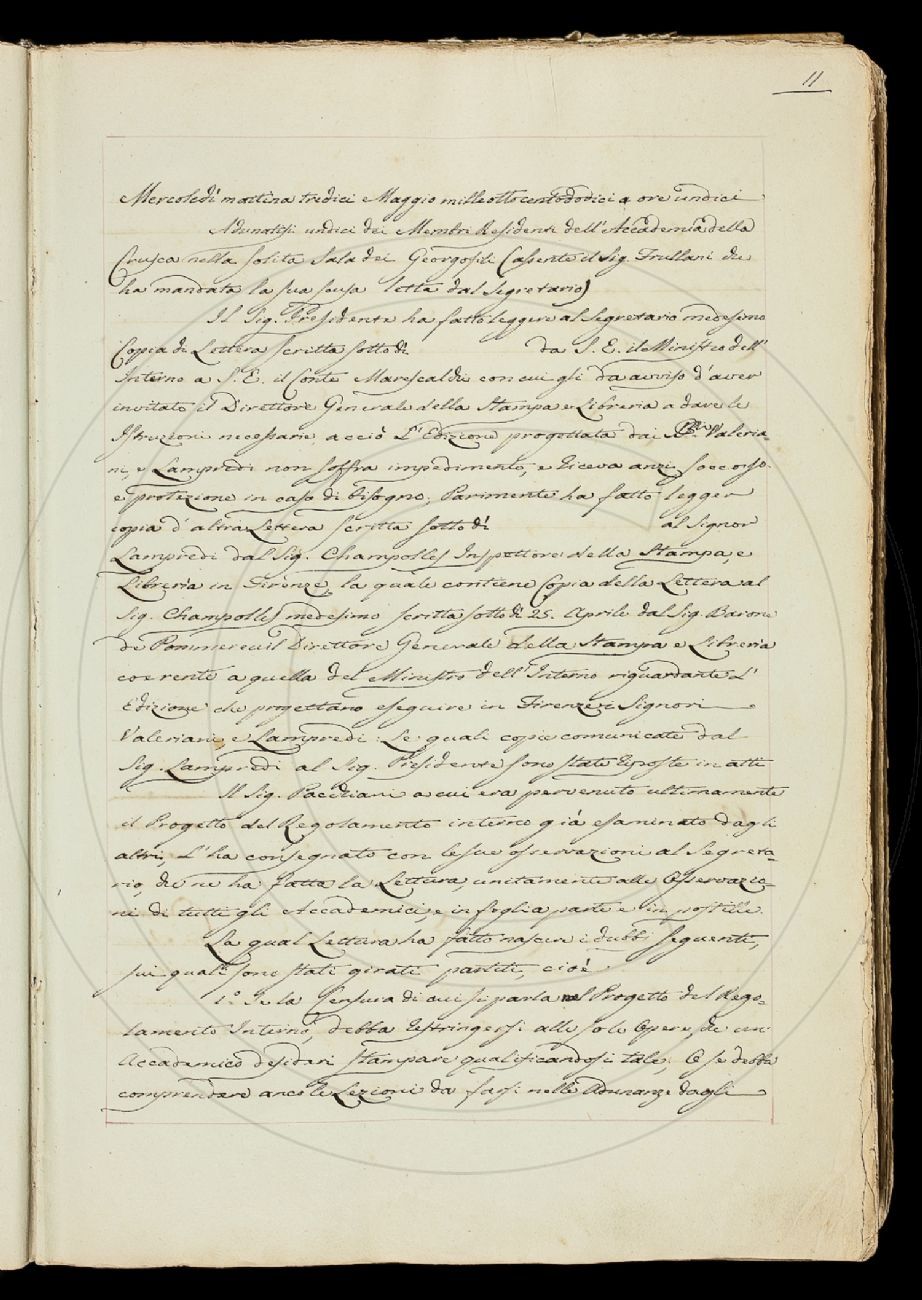 11
Mercoledì mattina tredici Maggio milleottocentododici a ore undici
Adunatisi undici dei Membri Residenti dell'Accademia della
Crusca nella solita Sala dei Georgofili (assente il Sig. Frullani che
ha mandata la sua scusa letta dal Segretario)
Il Sig. Presidente ha fatto leggere al Segretario medesimo
Copia di Lettera scritta sotto dì da S. E. il Ministro dell'
Interno a S. E. il Conte Marescalchi con cui gli dà avviso d'aver
invitato il Direttore Generale della Stampa e Libreria a dare le
Istruzioni necessarie, acciò l'Edizione progettata dai SS.ri Valeria-
ni, e Lampredi non soffra impedimento, e riceva anzi soccorso
e protezione in caso di bisogno; Parimente ha fatto legger
copia d'altra Lettera scritta sotto dì al Signor
Lampredi dal Sig. Champolles Inspettore della Stampa, e
Libreria in Firenze, la quale contiene Copia della Lettera al
Sig. Champolles medesimo scritta sotto dì 25. Aprile dal Sig. Barone
de Pommereuil Direttore Generale della Stampa e Libreria
coerente a quella del Ministro dell'Interno riguardante l'
Edizione che progettano eseguire in Firenze i Signori
Valeriani, e Lampredi. Le quali copie comunicate dal
Sig. Lampredi al Sig. Presidente sono state Riposte in atti
Il Sig. Pacchiani a cui era pervenuto ultimamente
il Progetto del Regolamento interno già esaminato dagli
altri, l'ha consegnato con le sue osservazioni al Segreta-
rio, che ne ha fatta la Lettura, unitamente alle Osservazio-
ni di tutti gli Accademici e in foglia parte e in postille.
La qual Lettura ha fatto nascere i dubbi seguenti,
sui quali sono stati girati partiti, cioè
1.° Se la Censura di cui si parla nel Progetto del Rego-
lamento Interno, debba restringersi alle sole Opere, che un
Accademico desideri stampare qualificandosi tale; O se debba
comprendere anco le Lezioni da farsi nelle Adunanze dagli